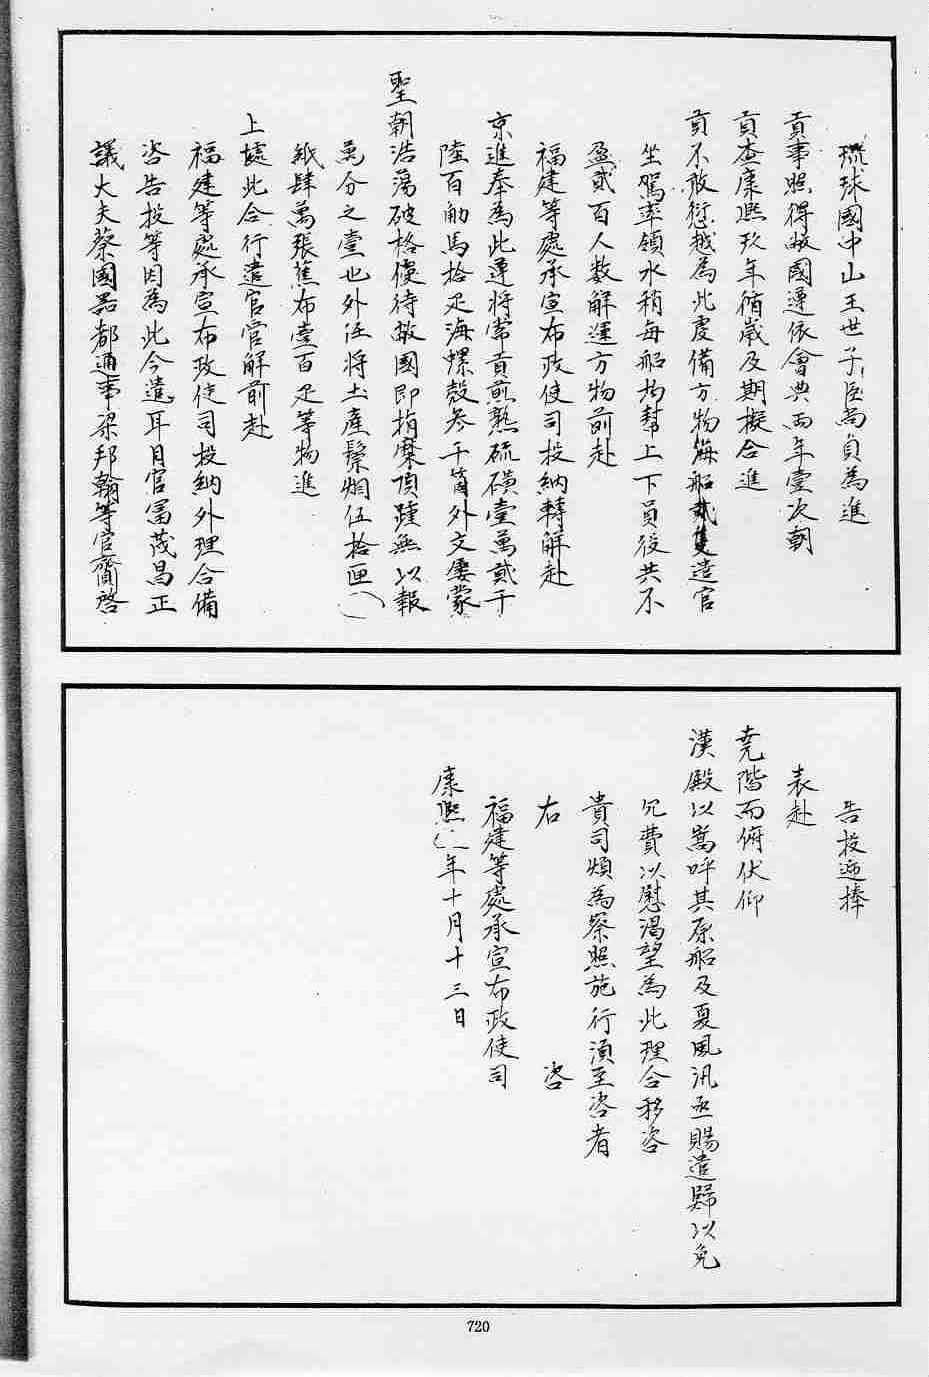 琉球國中山王世子臣尚貞為進
貢事照得敝國遵依會典兩年壹次朝
貢查康熙玖年循歲及期擬合進
貢不敢愆越為此虔備方物海船貳隻遣官
坐駕率領水稍每船均幇上下員役共不
盈貳百人數解運方物前赴
福建等處承宣布政使司投納轉解赴
京進奉為此遵將常貢煎熟硫磺壹萬貳千
陸百觔馬拾疋海螺殼參千箇外文屢蒙
聖朝浩蕩破格優待敝國即捐糜頂踵無以報
萬分之壹也外伍將土產鬃烟伍拾匣
紙肆萬張蕉布壹百疋等物進
上據此合行遣官官解前赴
福建等處承宣布政使司投納外理合備
咨告投等因為此今遣耳目官富茂昌正
議大夫蔡國器都通事梁邦翰等官齎啓
告投迎捧
表赴
堯階而俯伏仰
漢殿以嵩呼其原船及夏風汛亟賜遣歸以免
冗費以慰渴望為此理合移咨
貴司煩為察照施行須至咨者
右 咨
福建等處承宣布政使司
康熙 年十月十三日
720